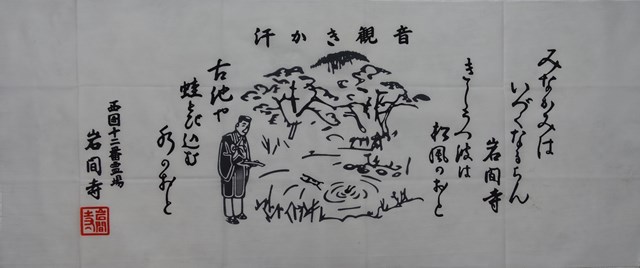 汗かき觀音
みなかみは
いづくなるらん
岩間寺
きしうつ波は
松風のおと
古池や
蛙とび込む
水のおと
西国十二番霊場
岩間寺
岩間寺